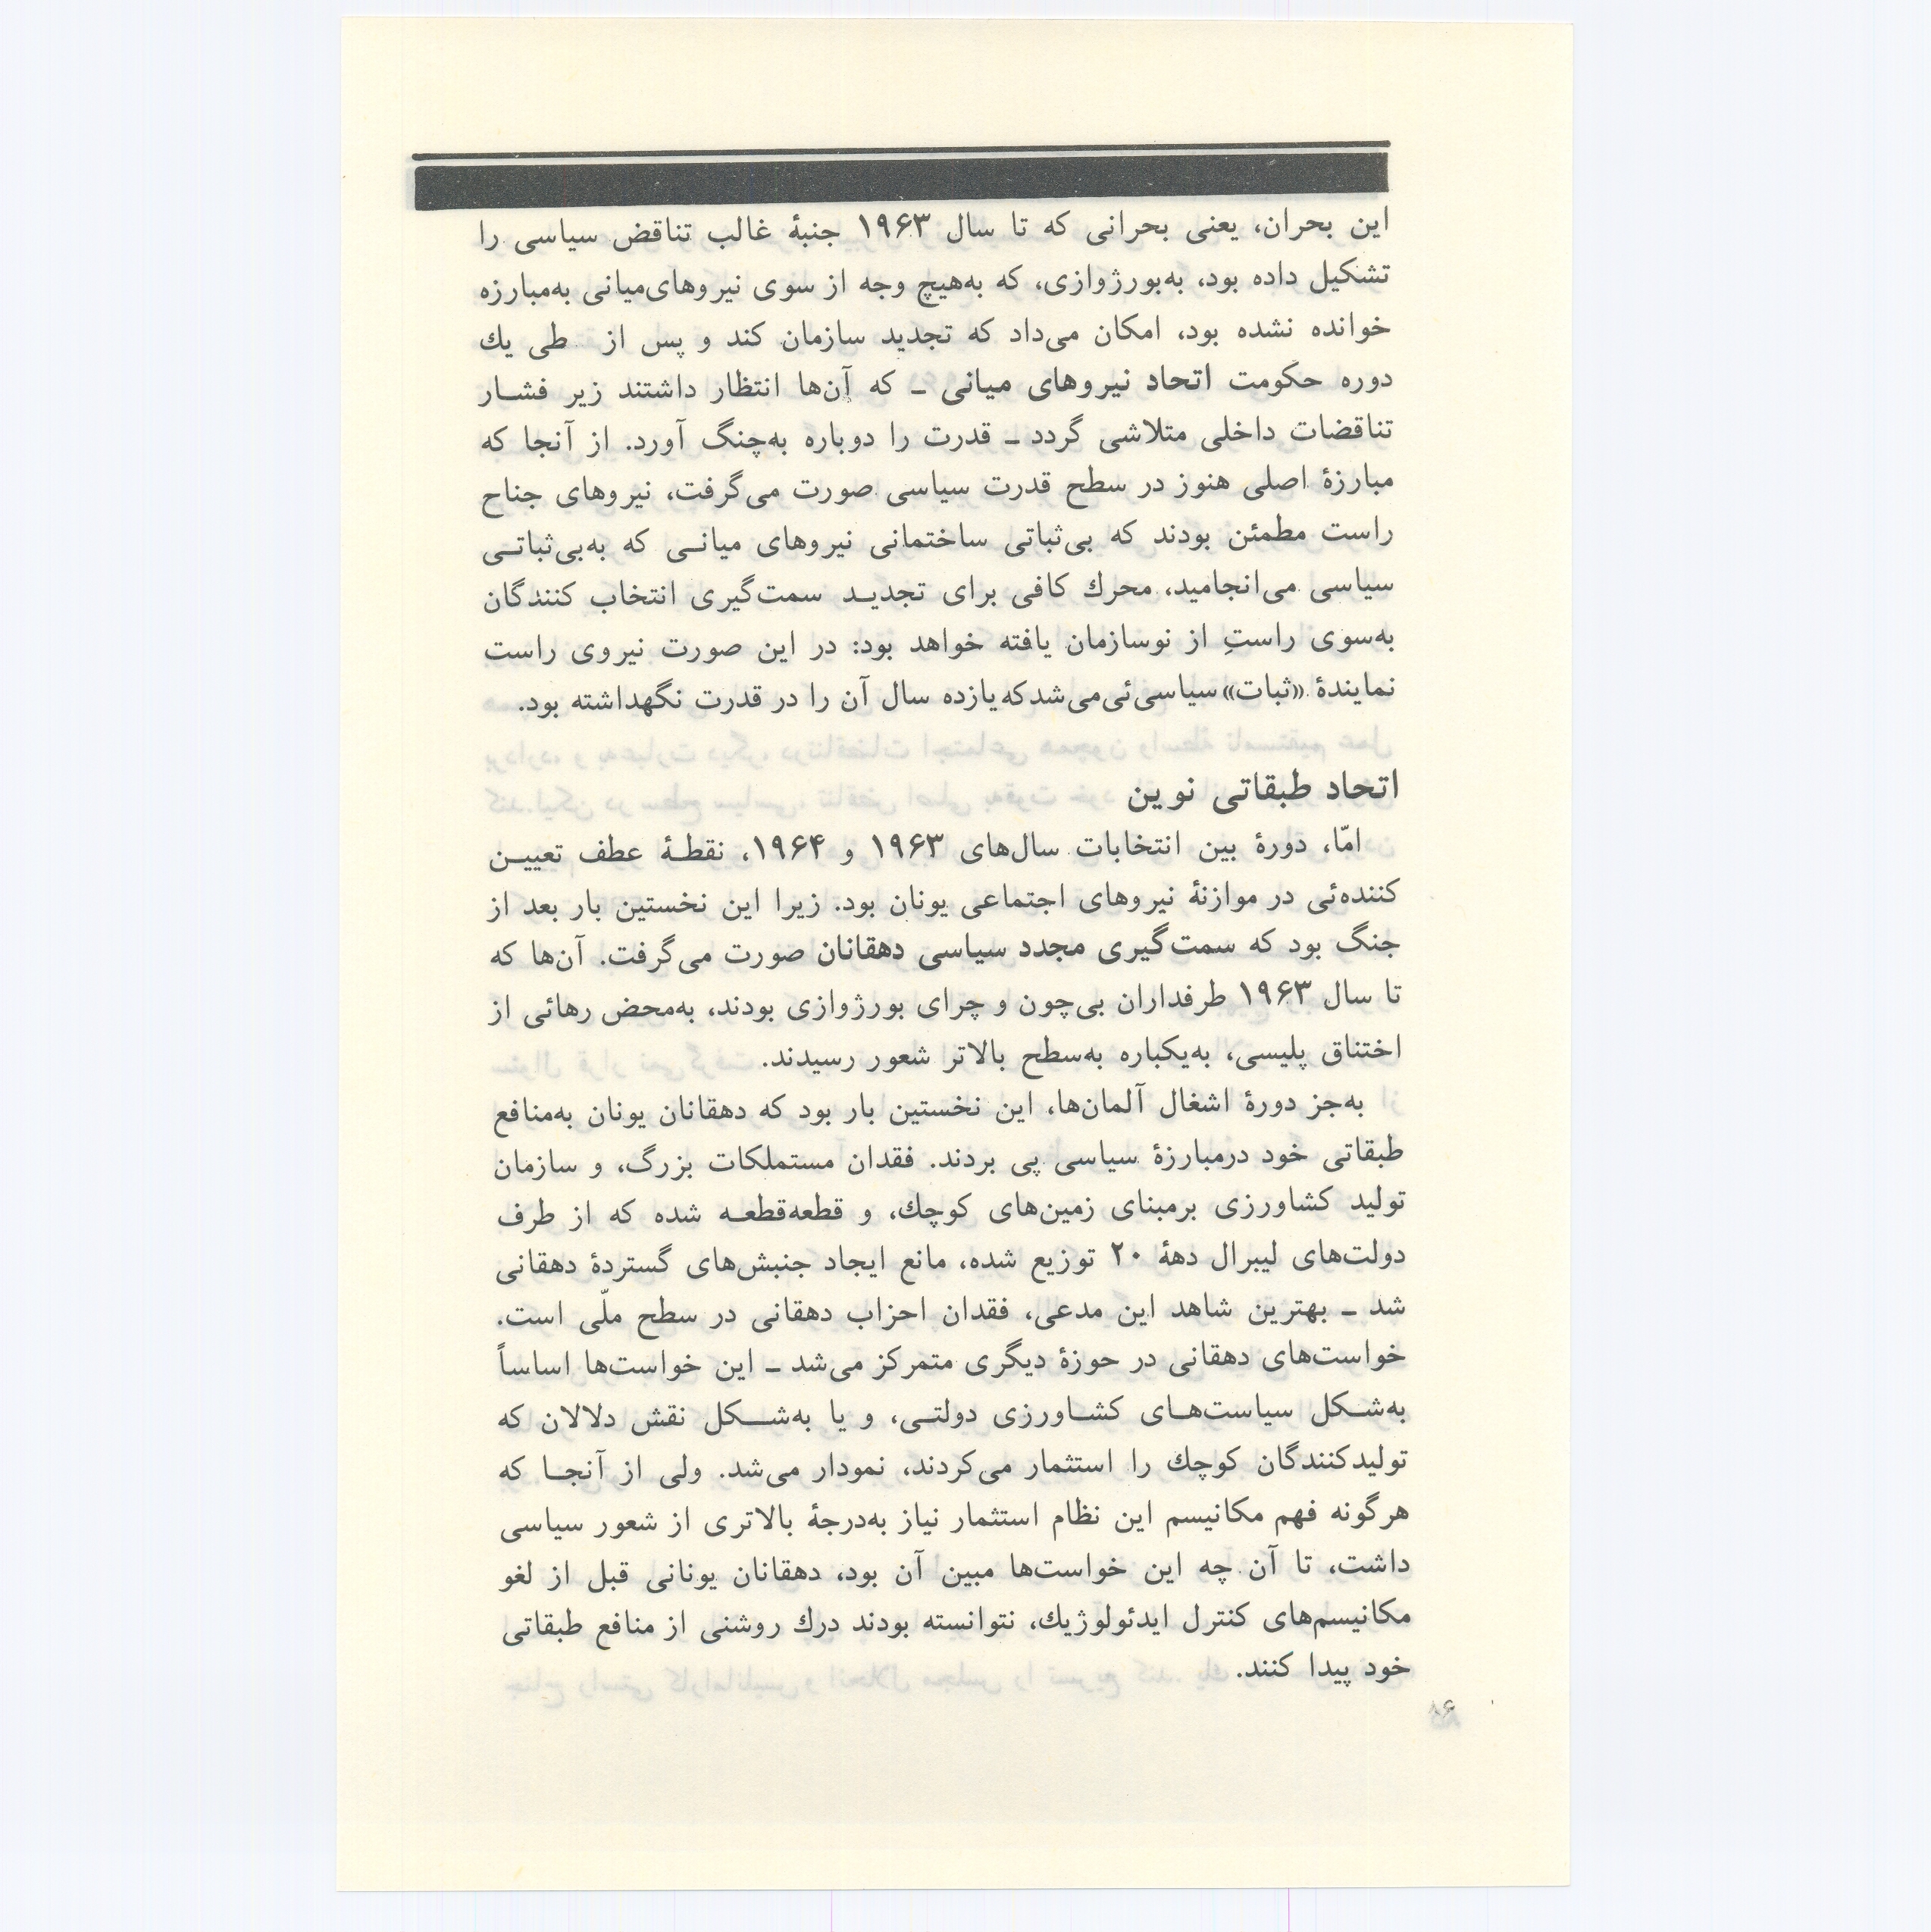 این بحران، یعنی بحرانی که تا سال ۱۹۶۳ جنبهٔ غالب تناقض سیاسی را
تشکیل داده بود، به‌بورژوازی، که به‌هیچ وجه از سوی نیروهای‌میانی به‌مبارزه
خوانده نشده بود، امکان می‌داد که تجدید سازمان کند و پس از طی یك
دوره حکومت اتحاد نیروهای میانی ـ که آن‌ها انتظار داشتند زیر فشـار
تناقضات داخلی متلاشی گردد ـ قدرت را دوباره به‌چنگ آورد. از آنجا که
مبارزهٔ اصلی هنوز در سطح قدرت سیاسی صورت می‌گرفت، نیروهای جناح
راست مطمئن بودند که بی‌ثباتی ساختمانی نیروهای میانـی که به‌بی‌ثباتـی
سیاسی می‌انجامید، محرك کافی برای تجدیـد سمت‌گیری انتخاب کنندگان
به‌سوی راستِ از نوسازمان یافته خواهد بود: در این صورت نیروی راست
نمایندهٔ «ثبات» سیاسی‌ئی‌می‌شدکه‌یازده سال آن را در قدرت نگهداشته بود.
اتحاد طبقاتی نوین
امّا، دورهٔ بین انتخابات سال‌های ۱۹۶۳ و ۱۹۶۴، نقطـهٔ عطف تعییـن
کننده‌ئی در موازنهٔ نیروهای اجتماعی یونان بود. زیرا این نخستین بار بعد از
جنگ بود که سمت‌گیری مجدد سیاسی دهقانان صورت می‌گرفت. آن‌ها که
تا سال ۱۹۶۳ طرفداران بی‌چون و چرای بورژوازی بودند، به‌محض رهائی از
اختناق پلیسی، به‌یکباره به‌سطح بالاتر شعور رسیدند.
به‌جز دورهٔ اشغال آلمان‌ها، این نخستین بار بود که دهقانان یونان به‌منافع
طبقاتی خود درمبارزهٔ سیاسی پی بردند. فقدان مستملکات بزرگ، و سازمان
تولید کشاورزی برمبنای زمین‌های کوچك، و قطعه‌قطعـه شده که از طرف
دولت‌های لیبرال دههٔ ۲۰ توزیع شده، مانع ایجاد جنبش‌های گستردهٔ دهقانی
شد ـ بهترین شاهد این مدعی، فقدان احزاب دهقانی در سطح ملّی است.
خواست‌های دهقانی در حوزهٔ دیگری متمرکز می‌شد ـ این خواست‌ها اساساً
به‌شـکل سیاست‌هـای کشـاورزی دولتـی، و یا به‌شــکل نقش دلالان که
تولیدکنندگان کوچك را استثمار می‌کردند، نمودار می‌شد. ولی از آنجـا که
هرگونه فهم مکانیسم این نظام استثمار نیاز به‌درجهٔ بالاتری از شعور سیاسی
داشت، تا آن چه این خواست‌ها مبین آن بود، دهقانان یونانی قبل از لغو
مکانیسم‌های کنترل ایدئولوژیك، نتوانسته بودند درك روشنی از منافع طبقاتی
خود پیدا کنند.